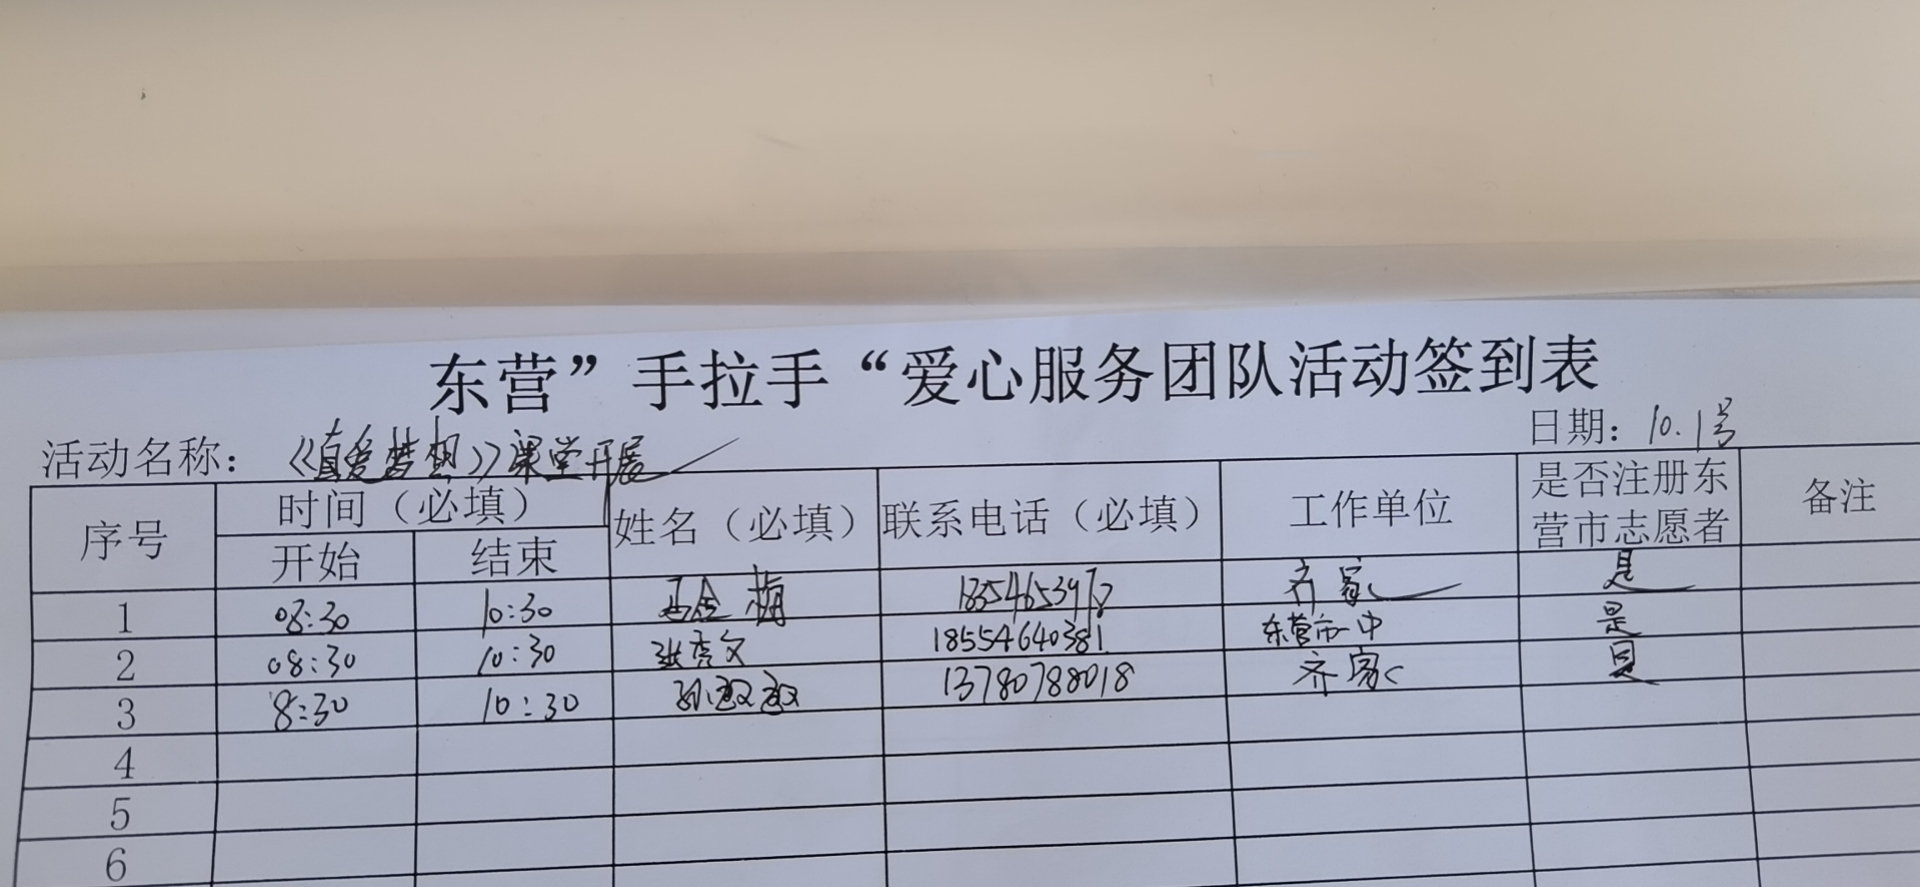 东营”手拉手“爱心服务团队活动签到表
活动名称：《真爱梦想》课堂开展 日期：10.1号
序号 时间（必填） 姓名（必填） 联系电话（必填） 工作单位 是否注册东营市志愿者 备注
开始 结束
1 08:30 10:30 金梅 齐家 是
2 08:30 10:30 张秀文 18554640381 东营市一中 是
3 8:30 10:30 孙 13780788018 齐家 是
4
5
6